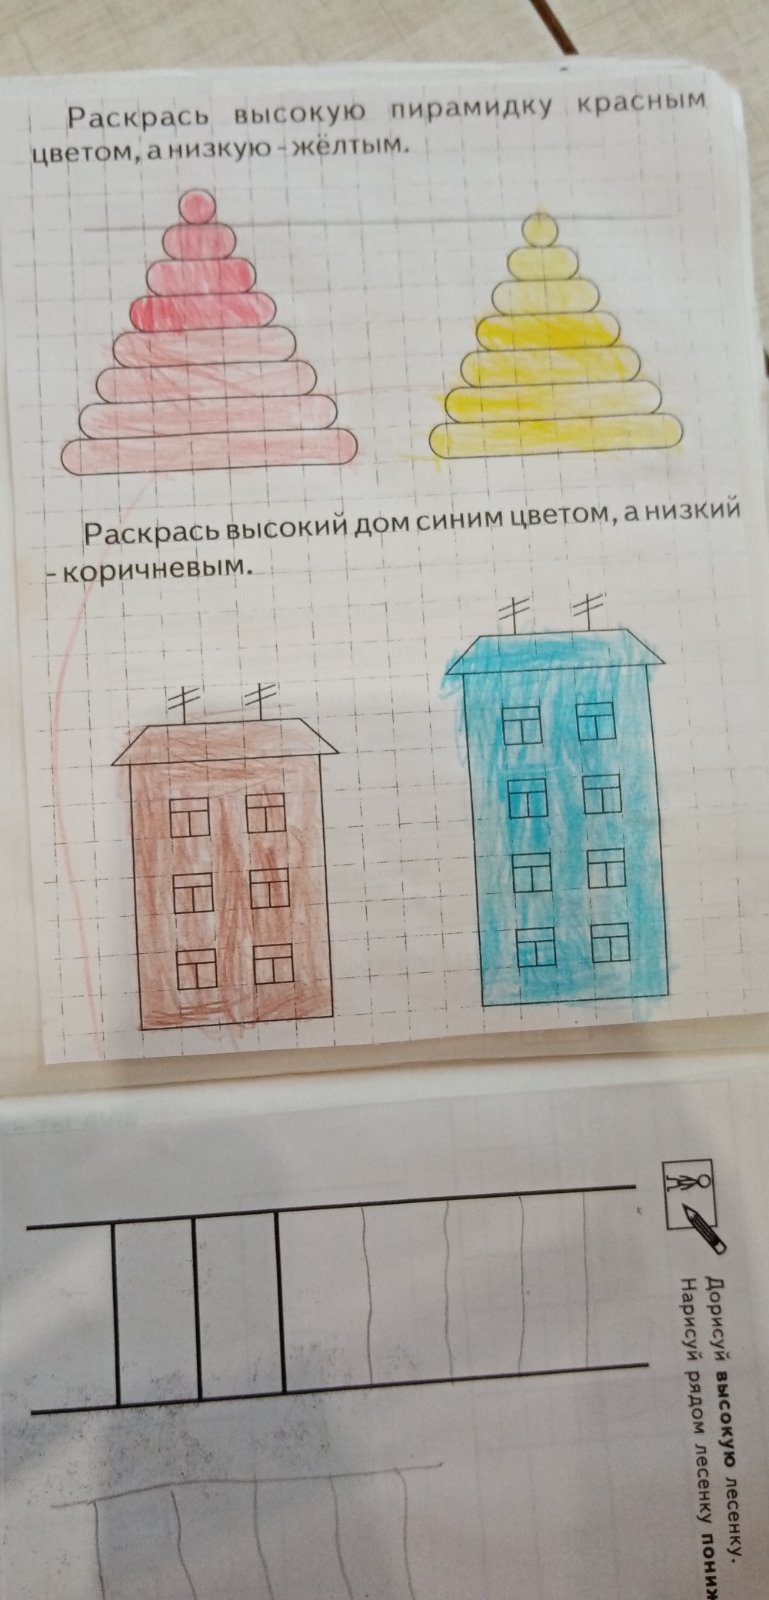 Раскрась высокую пирамидку красным
цветом, а низкую - жёлтым.
Раскрась высокий дом синим цветом, а низкий
- коричневым.
Дорисуй высокую лесенку.
Нарисуй рядом лесенку